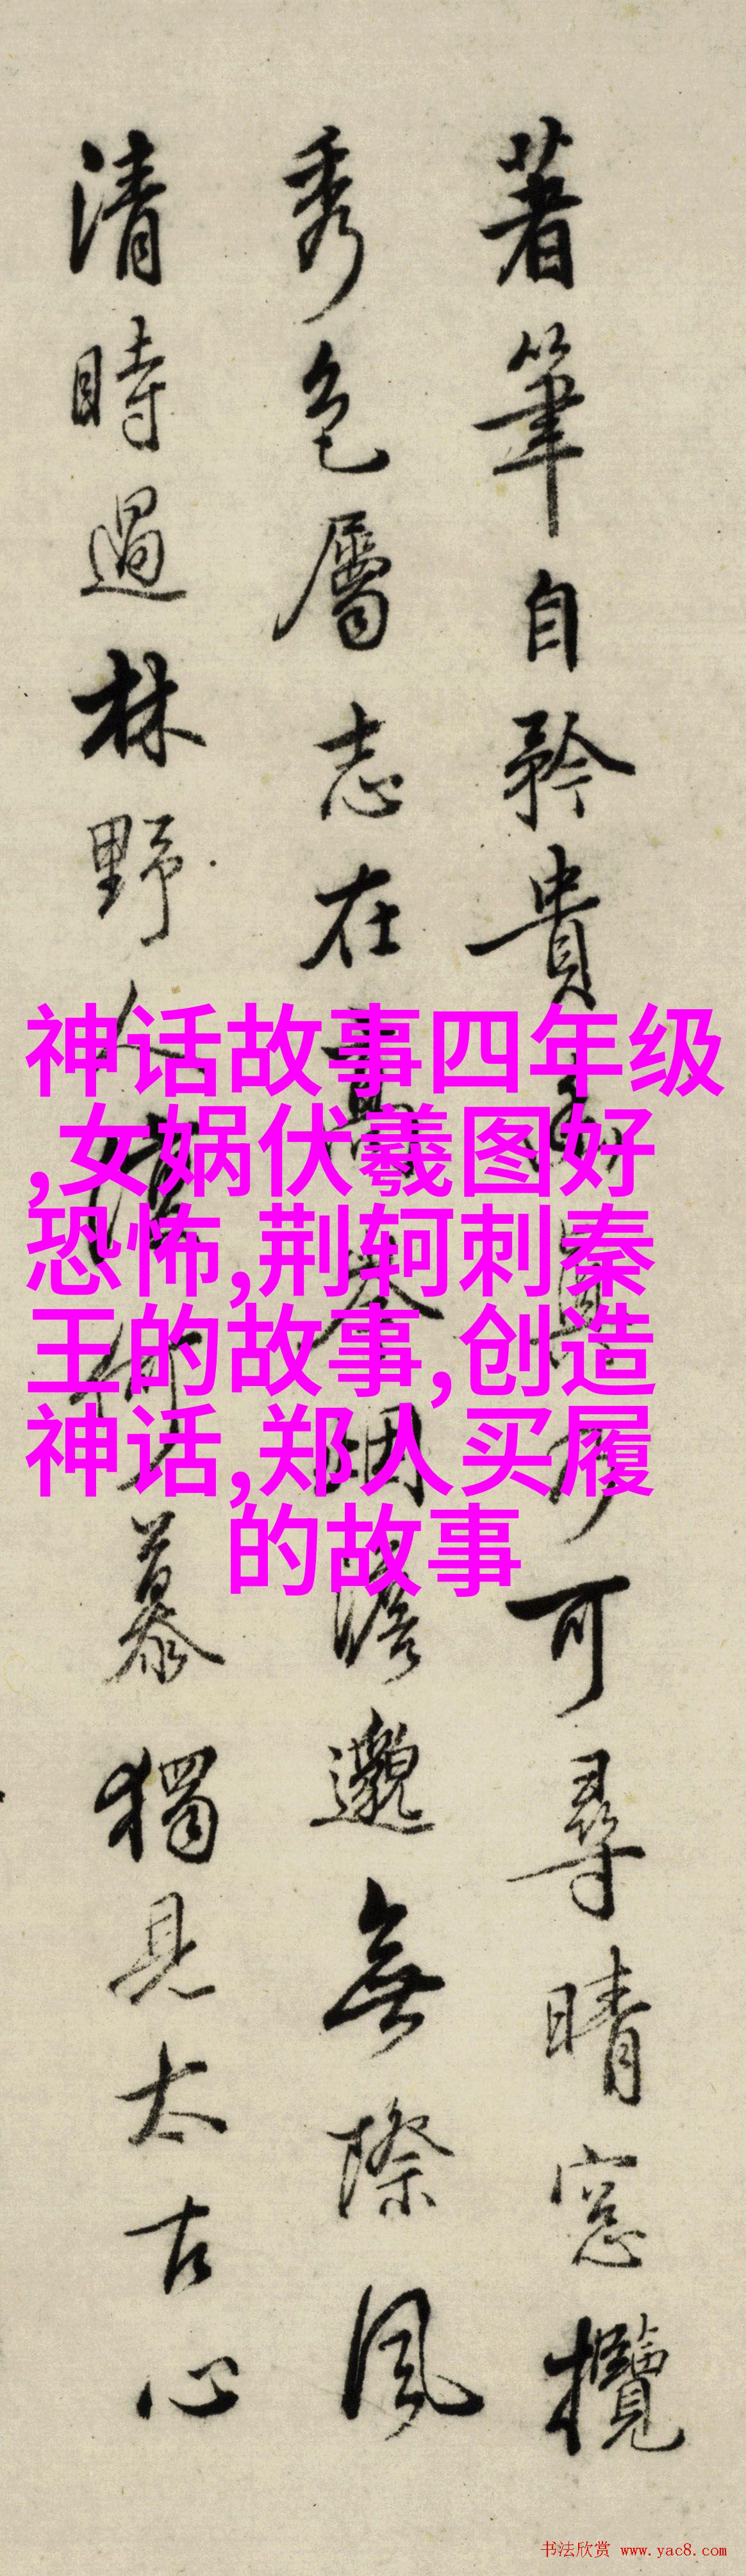 著筆自矜貴可尋晴窓攬
秀色屬志在澹邈無際風
清時過林野人慕獨見太古心
神话故事四年级
,女娲伏羲图好
恐怖,荆轲刺秦
王的故事,创造
神话,郑人买履
的故事
书法欣赏 www.yac8.com